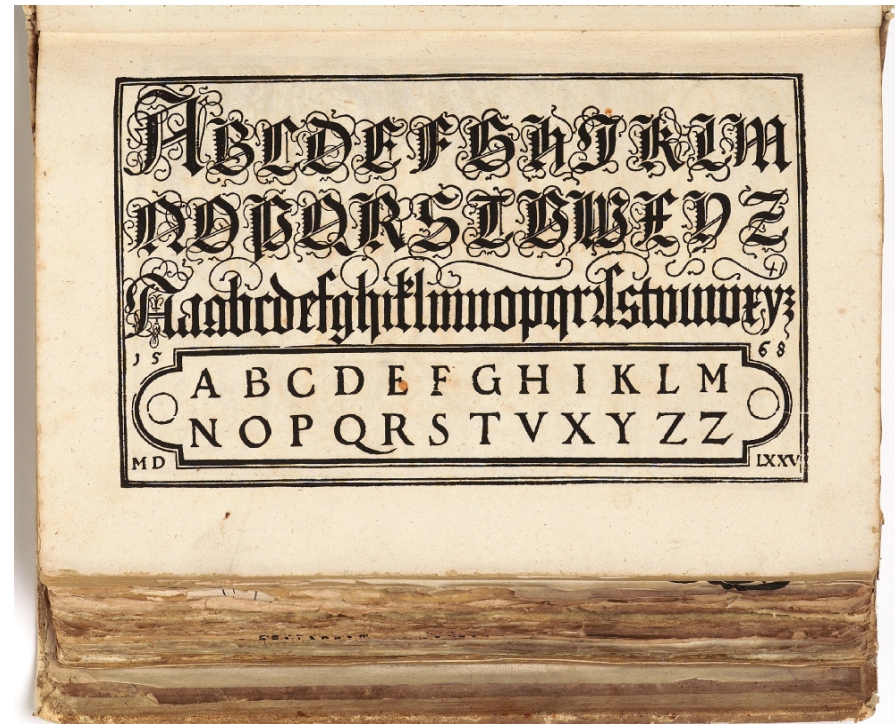 A B C D E F G H I K L M
N O P Q R S T V W X Y Z
A a a b c d e f g h i k l m n o p q r ꝛ ſ s t v u w x y z
15 68
A B C D E F G H I K L M
N O P Q R S T V X Y Z Z
MD LXXV